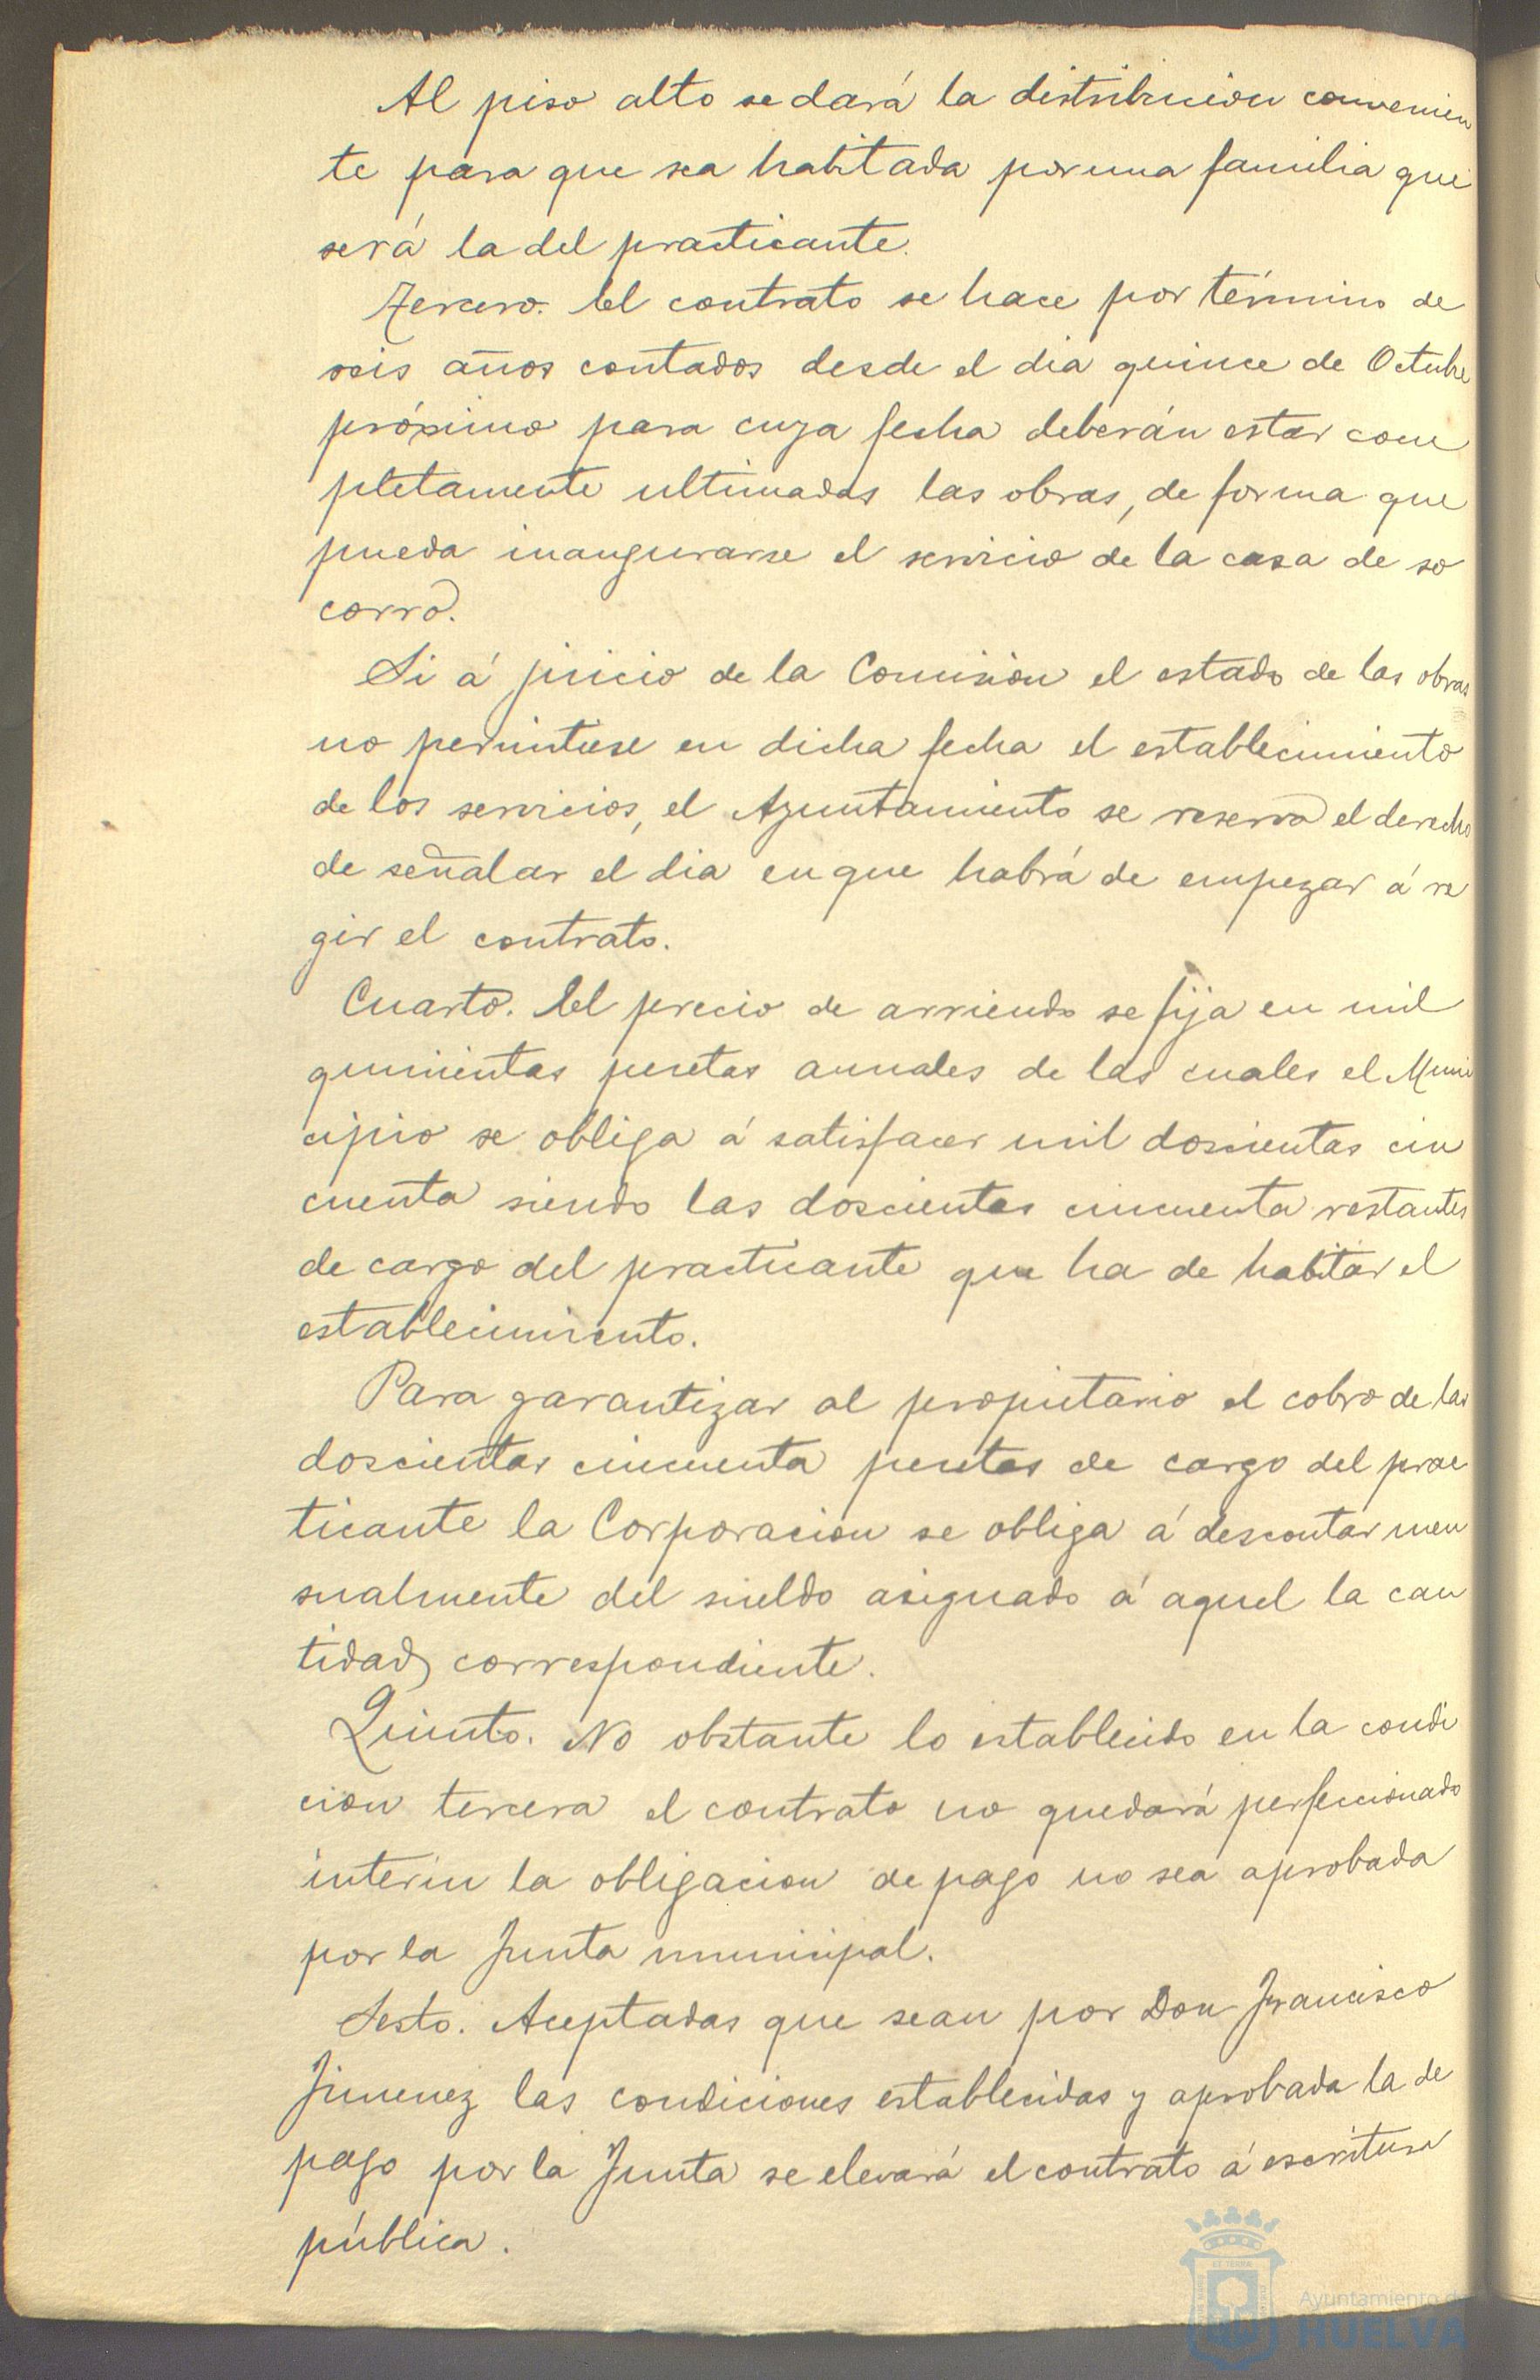 Al piso alto se dará la distribucion convenien
te para que sea habitada por una familia que
será la del practicante.
Tercero. El contrato se hace por término de
seis años contados desde el dia quince de Octubre
próximo para cuya fecha deberán estar com
pletamente ultimadas las obras, de forma que
pueda inaugurarse el servicio de la casa de so
corro.
Si á juicio de la Comision el estado de las obras
no permitiese en dicha fecha el establecimiento
de los servicios, el Ayuntamiento se reserva el derecho
de señalar el dia en que habrá de empezar á re
gir el contrato.
Cuarto. El precio de arriendo se fija en mil
quinientas pesetas anuales de las cuales el Muni
cipio se obliga á satisfacer mil doscientas cin
cuenta siendo las doscientas cincuenta restantes
de cargo del practicante que ha de habitar el
establecimiento.
Para garantizar al propietario el cobro de las
doscientas cincuenta pesetas de cargo del prac
ticante la Corporacion se obliga á descontar men
sualmente del sueldo asignado á aquel la can
tidad correspondiente.
Quinto. No obstante lo establecido en la condi
cion tercera el contrato no quedará perfeccionado
interin la obligacion de pago no sea aprobada
por la Junta municipal.
Sesto. Aceptadas que sean por Don Francisco
Jimenez las condiciones establecidas y aprobada la de
pago por la Junta se elevará el contrato á escritura
pública.
Ayuntamiento de
HUELVA